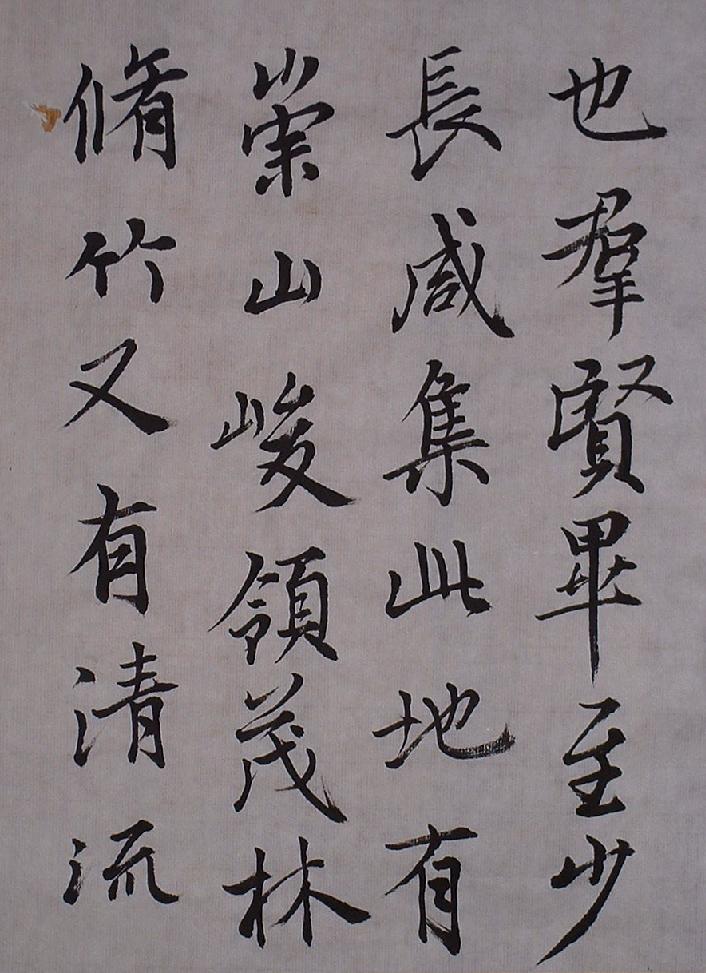 也羣賢畢至少
長咸集此地有
崇山峻領茂林
脩竹又有清流